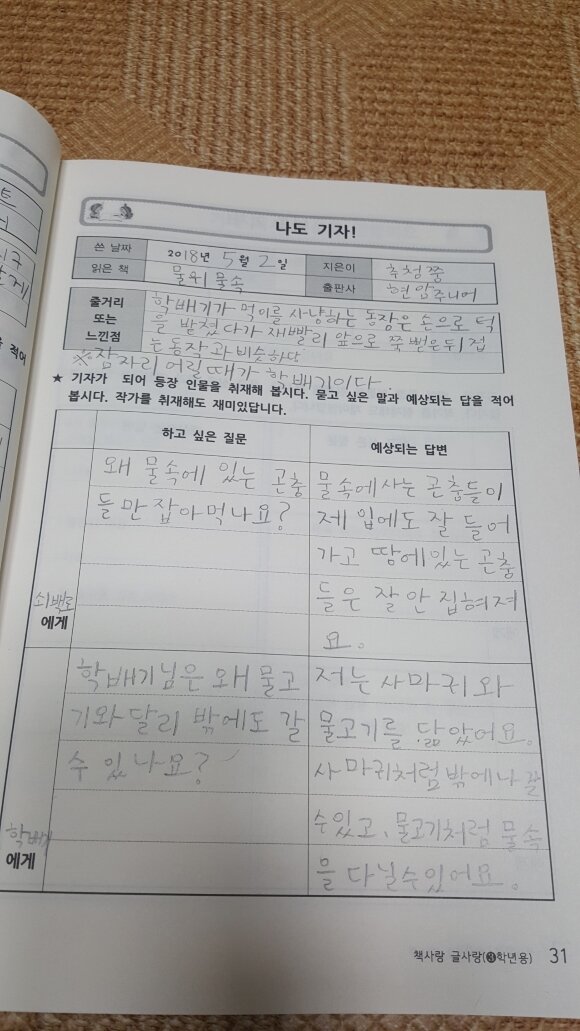 나도 기자!
쓴 날짜 2018년 5월 2일 지은이 추청쫑
읽은 책 물위 물속 출판사 현암주니어
줄거리 또는 느낀점
학배기가 먹이를 사냥하는 동장은 손으로 턱
을 받쳤다가 재빨리 앞으로 쭉 뻗은뒤 접
는 동작과 비슷하다
※잠자리 어릴때가 학배기이다.
★ 기자가 되어 등장 인물을 취재해 봅시다. 묻고 싶은 말과 예상되는 답을 적어
봅시다. 작가를 취재해도 재미있답니다.
하고 싶은 질문 예상되는 답변
쇠백로
에게
왜 물속에 있는 곤충
들만 잡아먹나요?
물속에사는 곤충들이
제 입에도 잘 들어
가고 땅에있는 곤충
들은 잘 안 집혀져
요.
학배기
에게
학배기님은 왜 물고
기와 달리 밖에도 갈
수 있나요?
저는 사마귀와
물고기를 닮았어요.
사마귀처럼 밖에나 갈
수있고, 물고기처럼 물속
을 다닐수있어요.
책사랑 글사랑(❸학년용) 31
적어